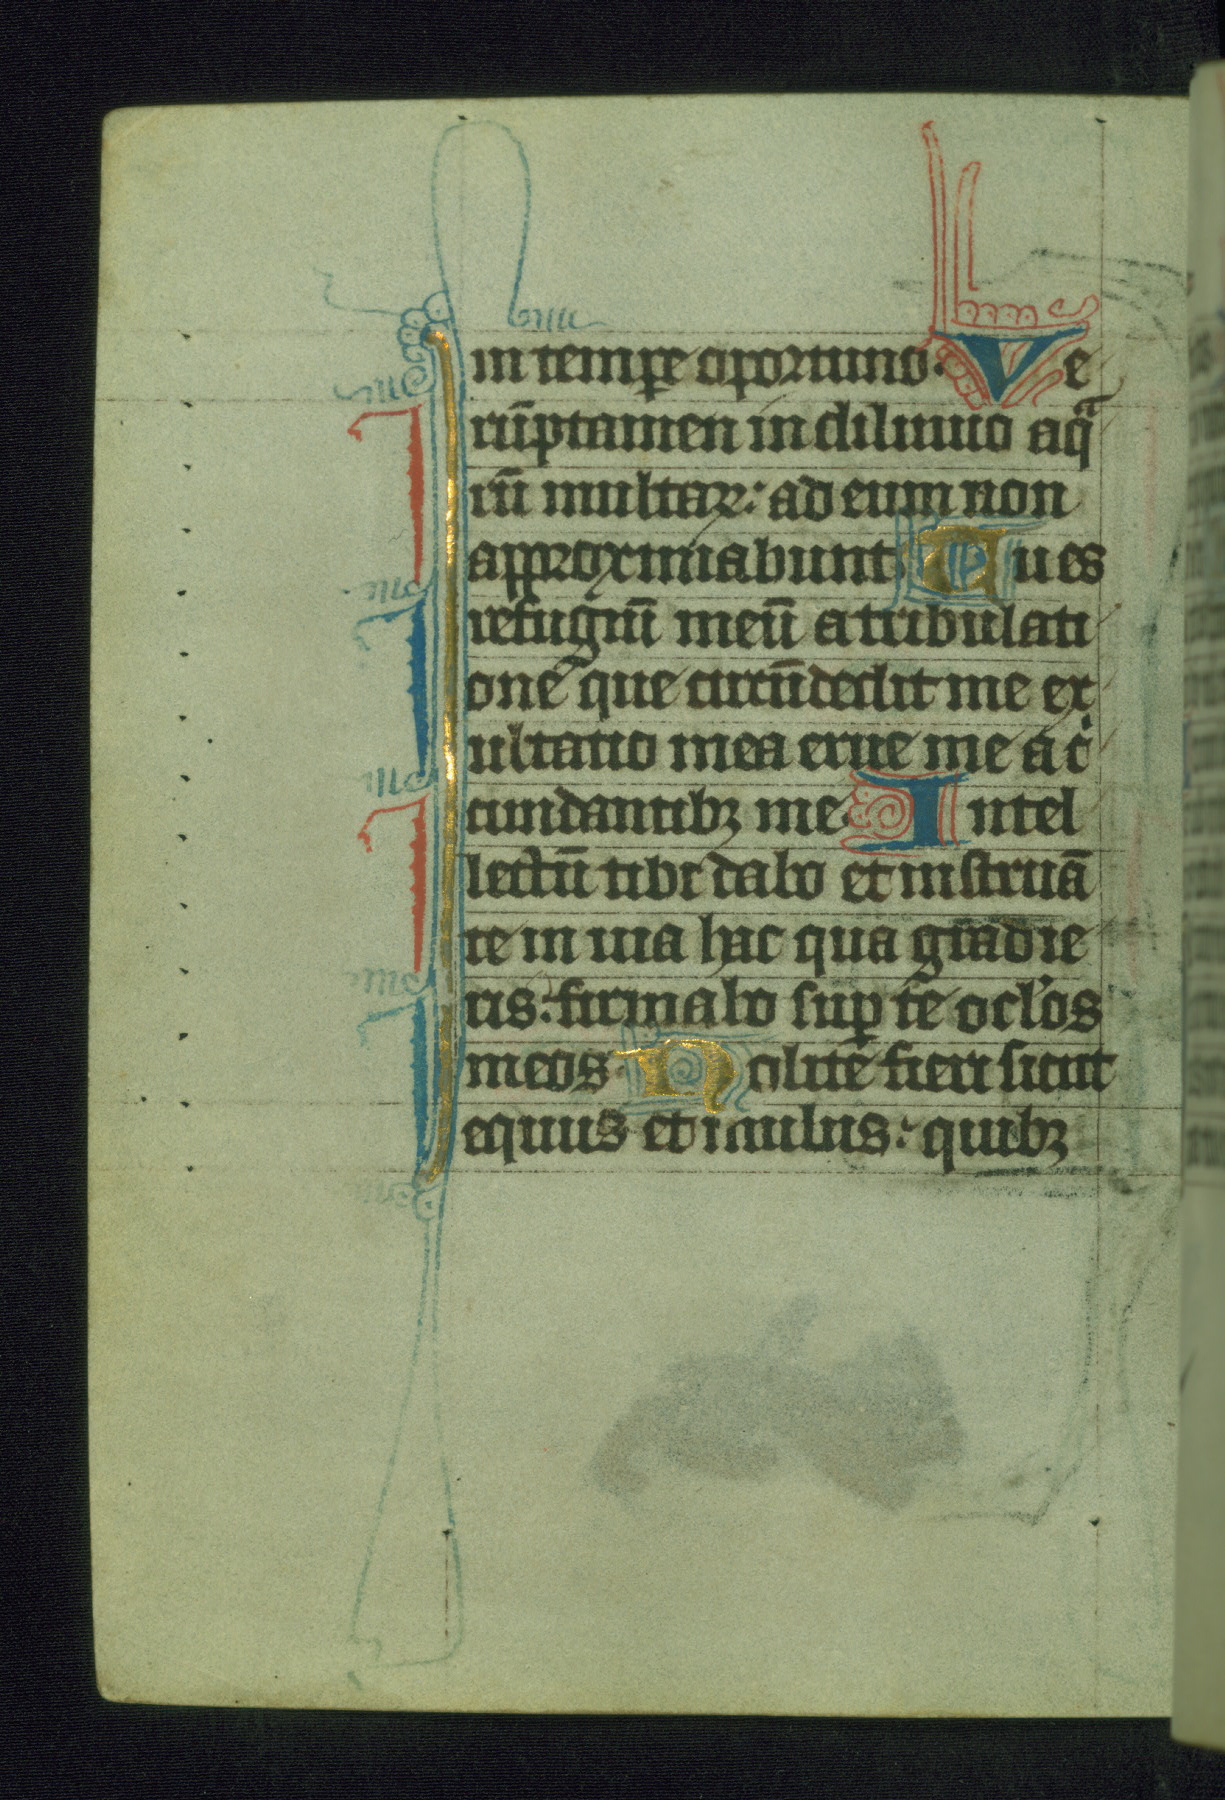 in tempr̄e oportuno. Ve
rūptamen in diluuio aqͣ
rū multaꝝ: ad eum non
approximabunt. Tu es
refugiū meū a tribulati
one que circūdedit me ex
ultatio mea erue me a cͥ
cundantibꝫ me. Intel
lectū tibi dabo et instruā
te in uia hac qua gradie
ris: firmabo suꝑ te oclos
meos. Nolite fieri sicut
equus et mulus: quibꝫ